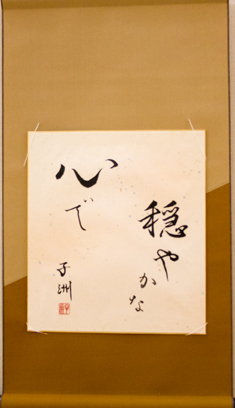 穏やかな
心で
子洲